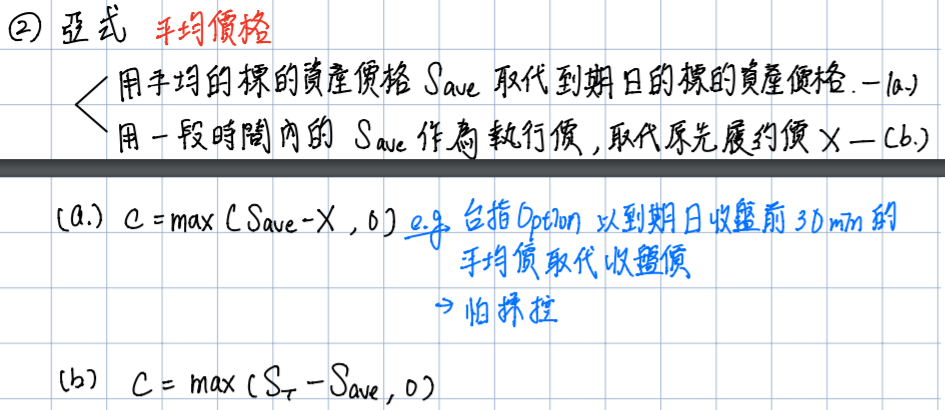 ② 亞式 平均價格
用平均的標的資產價格 Save 取代到期日的標的資產價格.－(a.)
用一段時間內的 Save 作為執行價,取代原先履約價 X －(b.)
(a.) C = max (Save - X , 0) e.g. 台指Option 以到期日收盤前 30 min 的
平均價取代收盤價
→ 怕操控
(b) C = max (ST - Save, 0)